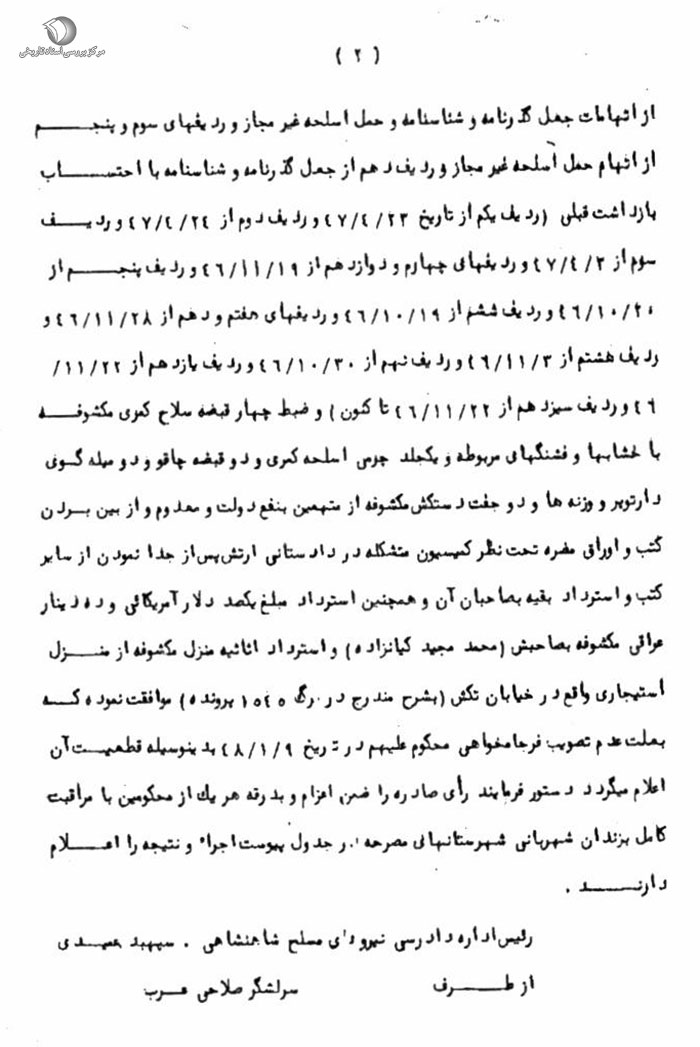 مرکز بررسی اسناد تاریخی
( ۲ )
از اتهامات جعل گذرنامه و شناسنامه و حمل اسلحه غیر مجاز و ردیفهای سوم و پنجم
از اتهام حمل اسلحه غیر مجاز و ردیف دهم از جعل گذرنامه و شناسنامه با احتساب
بازداشت قبلی (ردیف یکم از تاریخ ۴۷/۴/۲۳ و ردیف دوم از ۴۷/۴/۲۴ و ردیف
سوم از ۴۷/۴/۲ و ردیفهای چهارم و دوازدهم از ۴۶/۱۱/۱۹ و ردیف پنجم از
۴۶/۱۰/۲۰ و ردیف ششم از ۴۶/۱۰/۱۹ و ردیفهای هفتم و دهم از ۴۶/۱۱/۲۸ و
ردیف هشتم از ۴۶/۱۱/۳ و ردیف نهم از ۴۶/۱۰/۳۰ و ردیف یازدهم از ۱۱/۲۲/
۴۶ و ردیف سیزدهم از ۴۶/۱۱/۲۲ تا کنون) و ضبط چهار قبضه سلاح کمری مکشوفه
با خشابها و فشنگهای مربوطه و یکجلد چرمی اسلحه کمری و دو قبضه چاقو و دو میله گوی
دار توپر و وزنه ها و دو جفت دستکش مکشوفه از متهمین بنفع دولت و معدوم و از بین بردن
کتب و اوراق مضره تحت نظر کمیسیون متشکله در دادستانی ارتش پس از جدا نمودن از سایر
کتب و استرداد بقیه بصاحبان آن و همچنین استرداد مبلغ یکصد دلار آمریکائی و ده دینار
عراقی مکشوفه بصاحبش (محمد مجید کیانزاده) و استرداد اثاثیه منزل مکشوفه از منزل
استیجاری واقع در خیابان تکش (بشرح مندرج در برگ ۱۵۴۵ پرونده) موافقت نموده که
بعلت عدم تصویب فرجامخواهی محکوم علیهم در تاریخ ۴۸/۱/۹ بدینوسیله قطعیت آن
اعلام میگردد دستور فرمایند رأی صادره را ضمن اعزام و بدرقه هر یک از محکومین با مراقبت
کامل بزندان شهربانی شهرستانهای مصرحه در جدول پیوست اجراء و نتیجه را اعلام
دارند .
رئیس اداره دادرسی نیروهای مسلح شاهنشاهی . سپهبد
از طرف سرلشگر صلاحی عرب